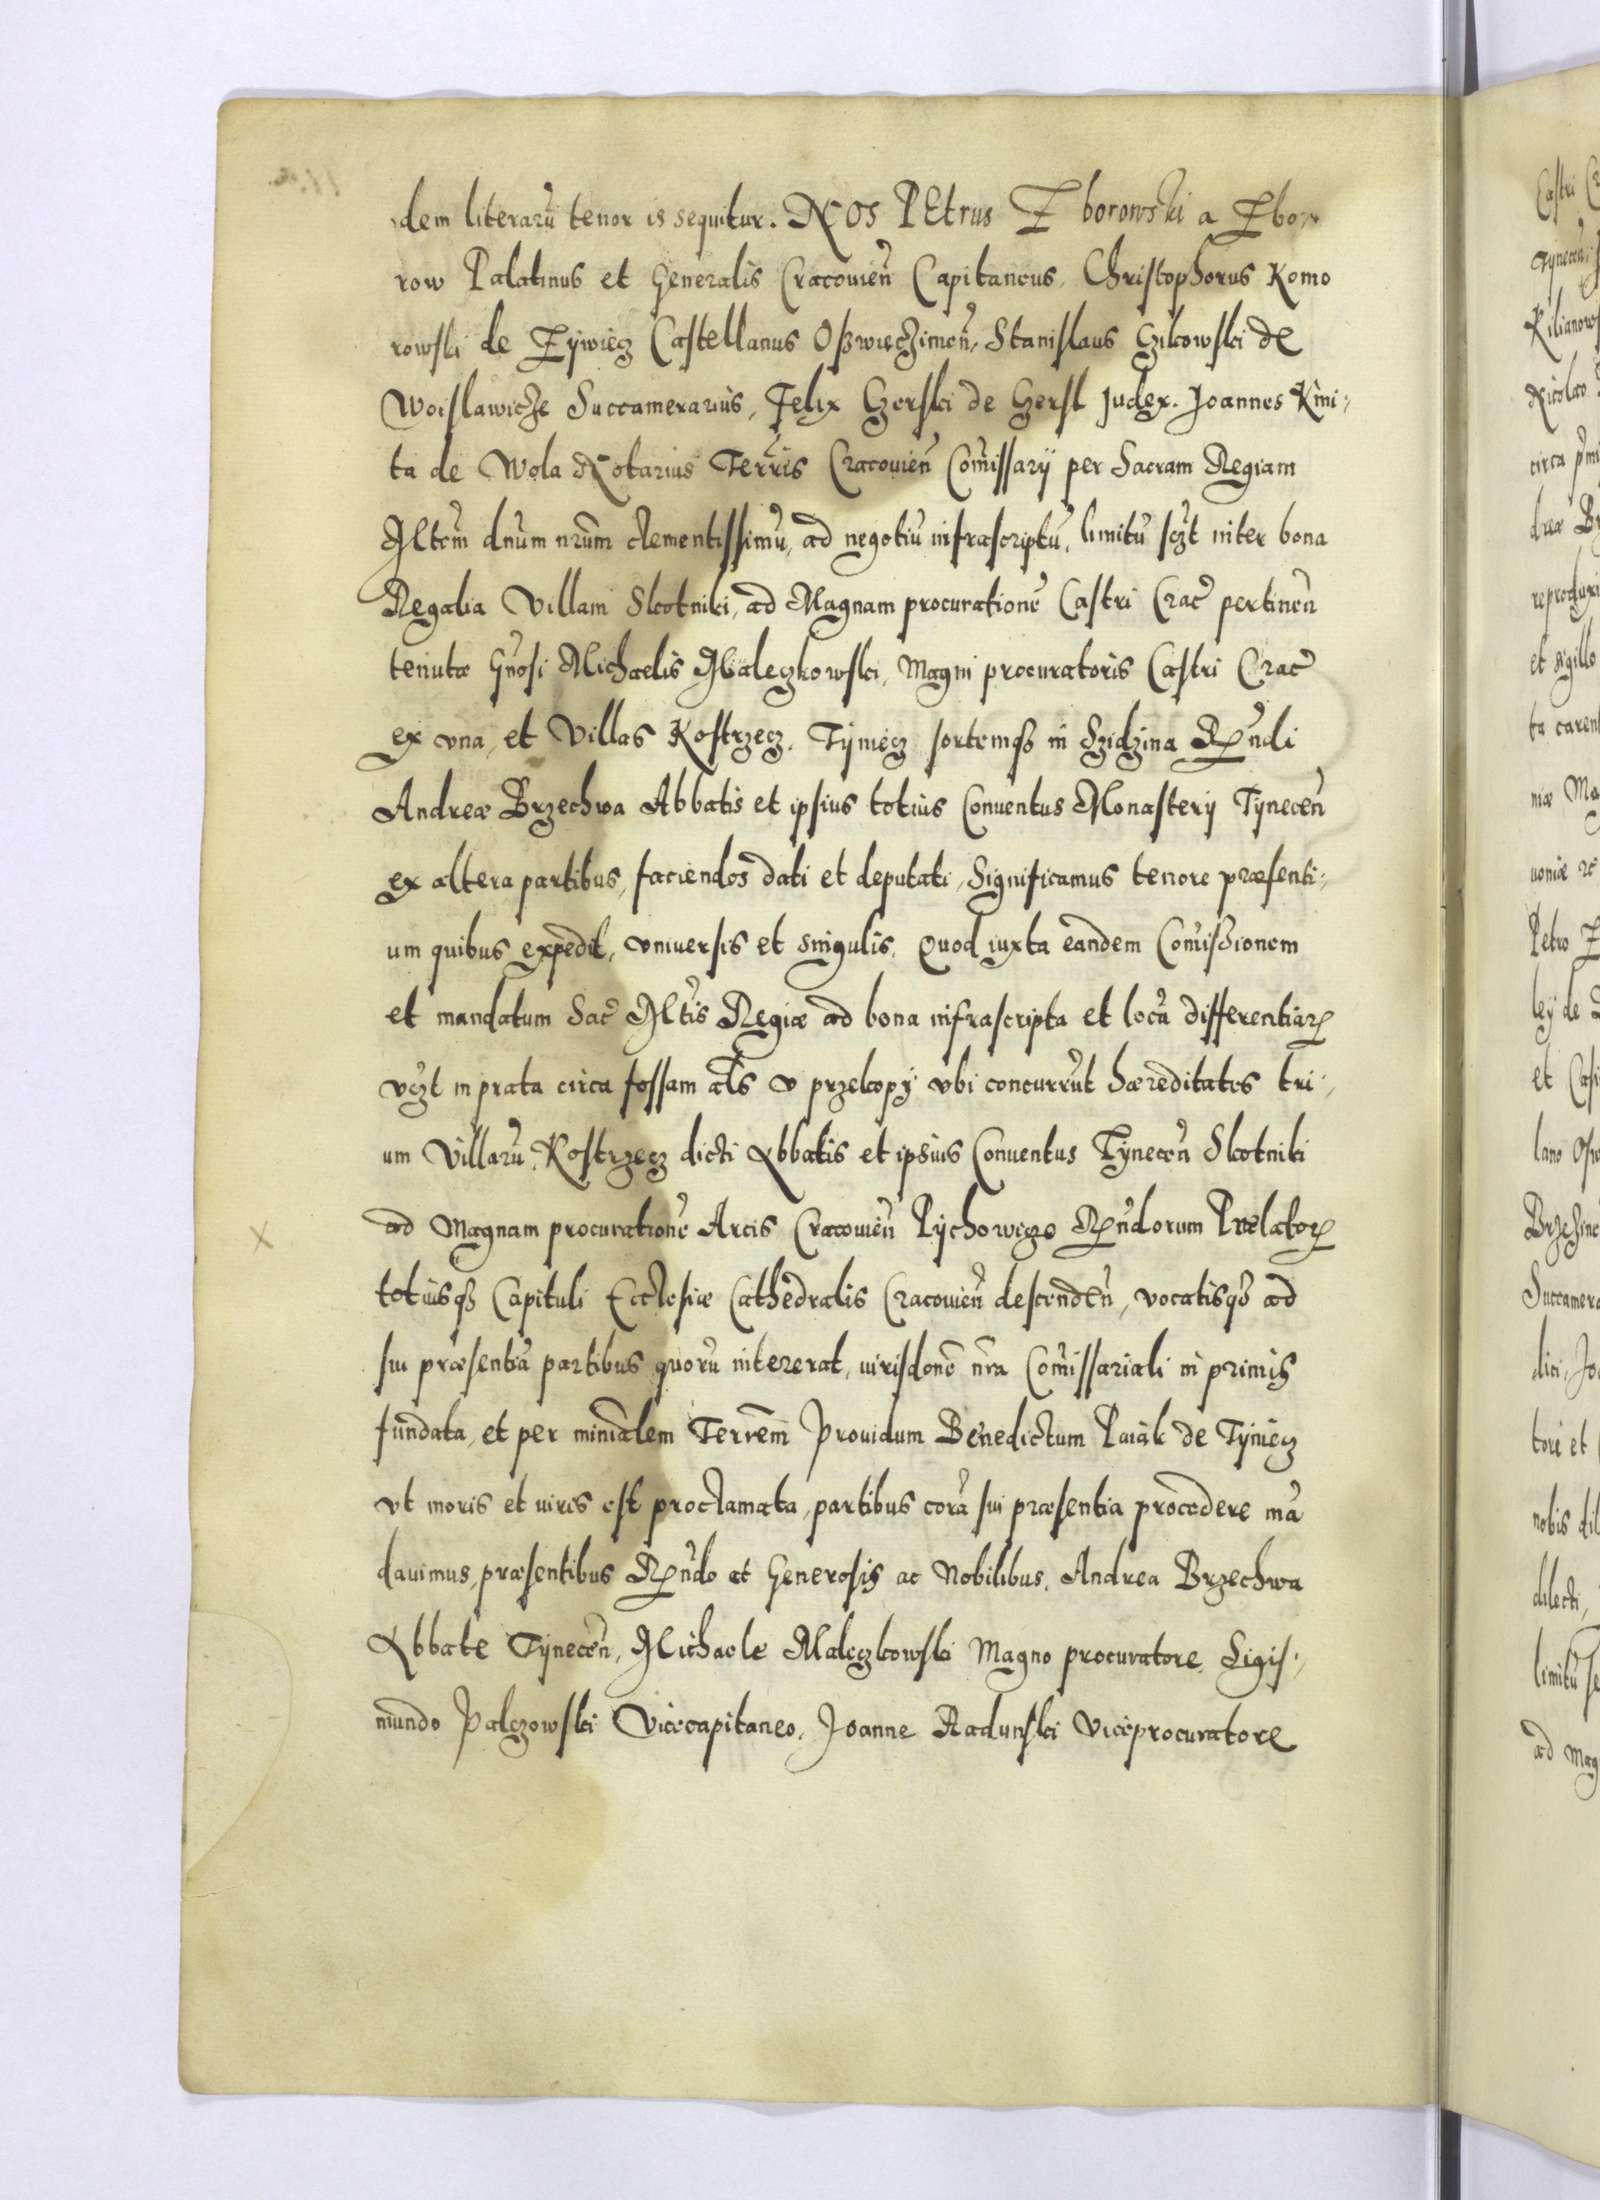 dem literarū tenor is sequitur. NOS PEtrus Zborowski a Zbo-
row Palatinus et Generalis Cracouien̄ Capitaneus, Christophorus Komo
rowski de Zÿwiecz Castellanus Oßwieczimen̄, Stanislaus Czikowski de
Woislawicze Succamerarius, Felix Czerski de Czersk Judex. Joannes Kmi-
ta de Wola Notarius Terrīs Cracouien̄ Com̄issarÿ per Sacram Regiam
Mtem̄ dn̄um nr̄um clementissimū, ad negotiū infrascriptū, limitū sczt inter bona
Regalia Villam Skotniki, ad Magnam procurationē Castri Crac̄ pertinen̄
tenutæ Gn̄osi Michaelis Maleczkowski, Magni procuratoris Castri Crac̄
ex vna, et Villas Kostrzecz, Tÿniecz sortemqȝ in Szidzina Rn̄di
Andreæ Brzechwa Abbatis et ipsius totius Conuentus Monasterÿ Tÿnecen̄
ex altera partibus, faciendos dati et deputati, Significamus tenore præsenti-
um quibus expedit, vniuersis et singulis, Quod iuxta eandem Com̄issionem
et mandatum Sac̄ Mtīs Regiæ ad bona infrascripta et loca differentiarꝝ
vczt in prata circa fossam al̄s v przekopÿ vbi concurrūt hæreditates tri-
um Villarū, Kostrzecz dicti Abbatis et ipsius Conuentus Tÿnecen̄ Skotniki
ad Magnam procurationē Arcis Cracouien̄ Pÿchowicze Rn̄dorum Prælatorꝝ
totiusqȝ Capituli Ecclesiæ Cathedralis Cracouien̄ descenden̄, vocatisqȝ ad
sui præsentiā partibus quorū intererat, iurisdone nr̄a Com̄issariali in primis
fundata, et per minialem̄ Terrem̄ Prouidum Benedictum Paiąk de Tÿniecz
vt moris et iuris est proclamata, partibus corā sui præsentia procedere mā
dauimus, præsentibus Rn̄do et Generosis ac Nobilibus, Andrea Brzechwa
Abbate Tÿnecen̄, Michaele Maleczkowski Magno procuratore, Sigis-
mundo Palczowski Vicecapitaneo, Joanne Radunski Viceprocuratore